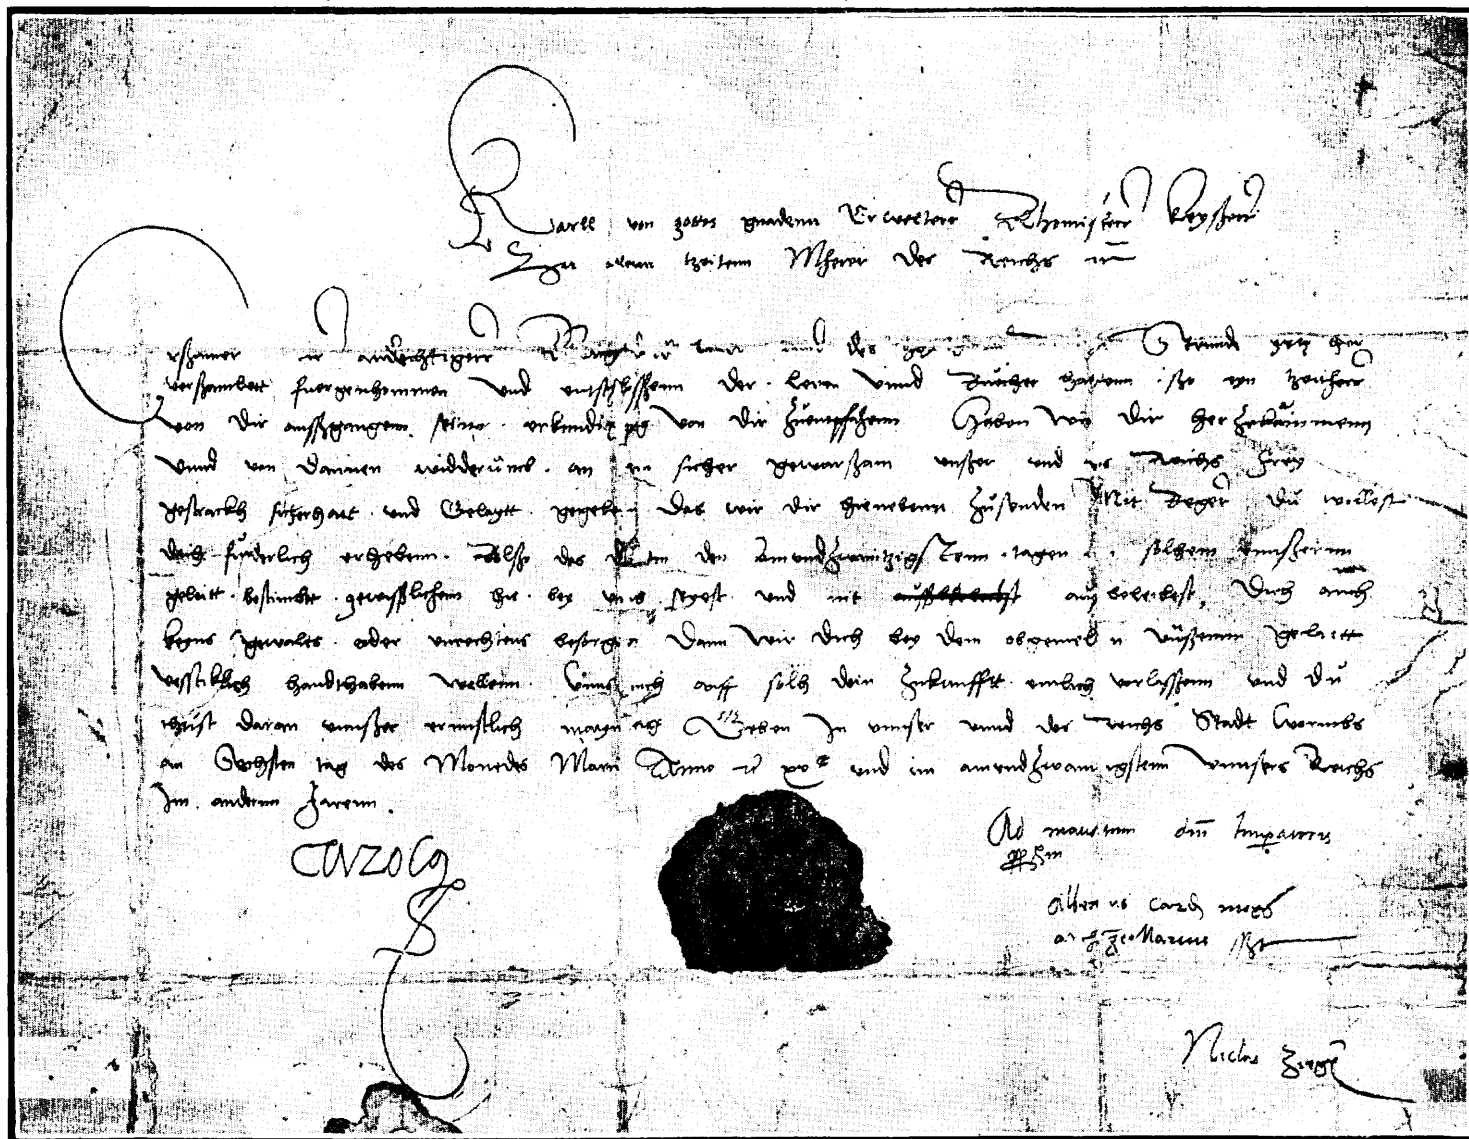 Karll von gottes gnadenn Erwelterr Rhomischerr Keyßerr
Zu allenn tzeitenn Mherer des Reichs
Ersamer andechtigerr
verßamlett fuergenhommen und entschlossenn der leren vnnd Buecher halbenn ßo eyn tzeither
von dir außgangenn seinn erkundigung von dir Zuempfahenn Haben wir dir her Zukummenn
vnnd von dannen widderumb an ein sicher gewarßam vnßer und des Reichs frey
gestrackh sicherhait und Gelaytt gegeben Das wir dir hienebenn Zusenden Mit Beger du wollest
dich furderlich erhebenn Alßo das du in den ainundZwaintzigstenn tagen in solhem vnnserm
gelaitt bestimbtt gewißlichenn hie bey vns seyest und nit außbeleibest Dich auch
keyns gewalts oder vnrechtens besorgen Dann wir dich bey dem obgemelten vnßerm gelaitt
vesstiklich handthabenn wellenn Vnns auch auff solh dein Zukunfftt enntlich verlassenn und du
thust daran vnnßer ernnstlich maynung Geben In vnnser vnnd des reichs Stadt Wormbs
am Sechsten tag des Monedes Marci Anno xvc und im ainundZwanzigstenn vnnsers Reichs
Im anderrn Jarenn
Carolus
Ad mandatum dni Imperatoris
pprium
Albertus Card mogs
archicancellarius sst
Niclas Zieg